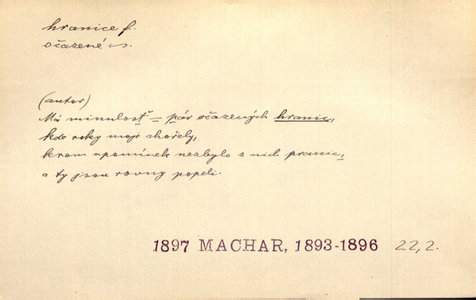 hranice f.
očazené s.
(autor)
Má minulosť = pár očazených hranic,
kde roky moje shořely,
krom upomínek nezbylo z nich pranic,
a ty jsou rovny popeli.
1897 MACHAR, 1893-1896 22,2.